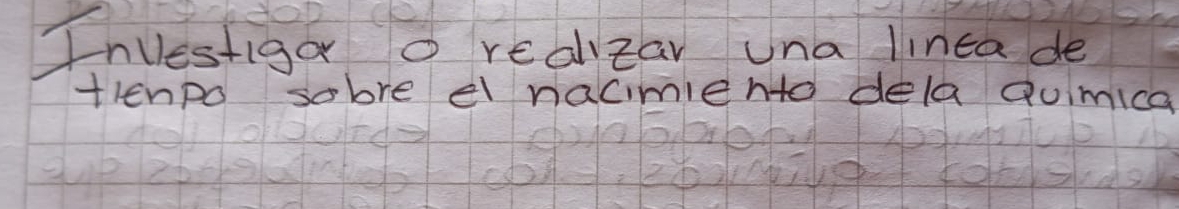 Investigar o realizar una linea de
tienpo sobre el nacimiento dela Quimica